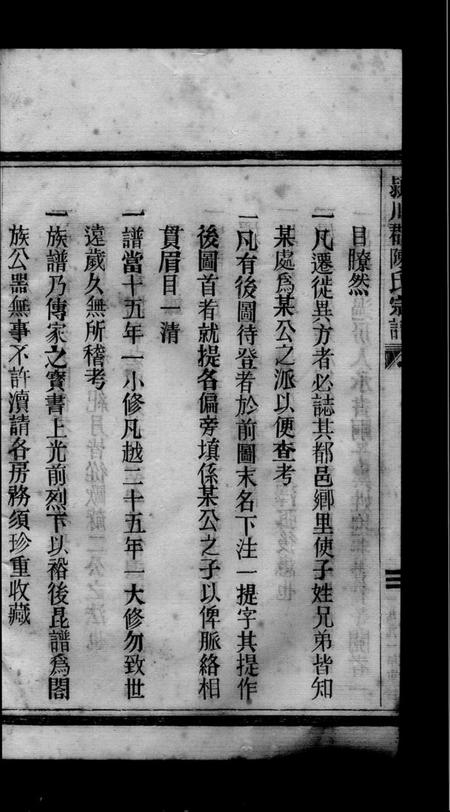 潁川郡陳氏宗譜
目瞭然
一凡遷徙異方者必誌其都邑鄉里使子姓兄弟皆知
某處為某公之派以便查考
一凡有後圖待登者於前圖末名下注一提字其提作
後圖首者就提名偏旁填係某公之子以俾脈絡相
貫眉目一清
一譜當十五年一小修凡越二十五年一大修勿致世
遠歲久無所稽考
一族譜乃傳家之寶書上光前烈下以裕後昆譜為闔
族公器無事不許瀆請各房務須珍重收藏